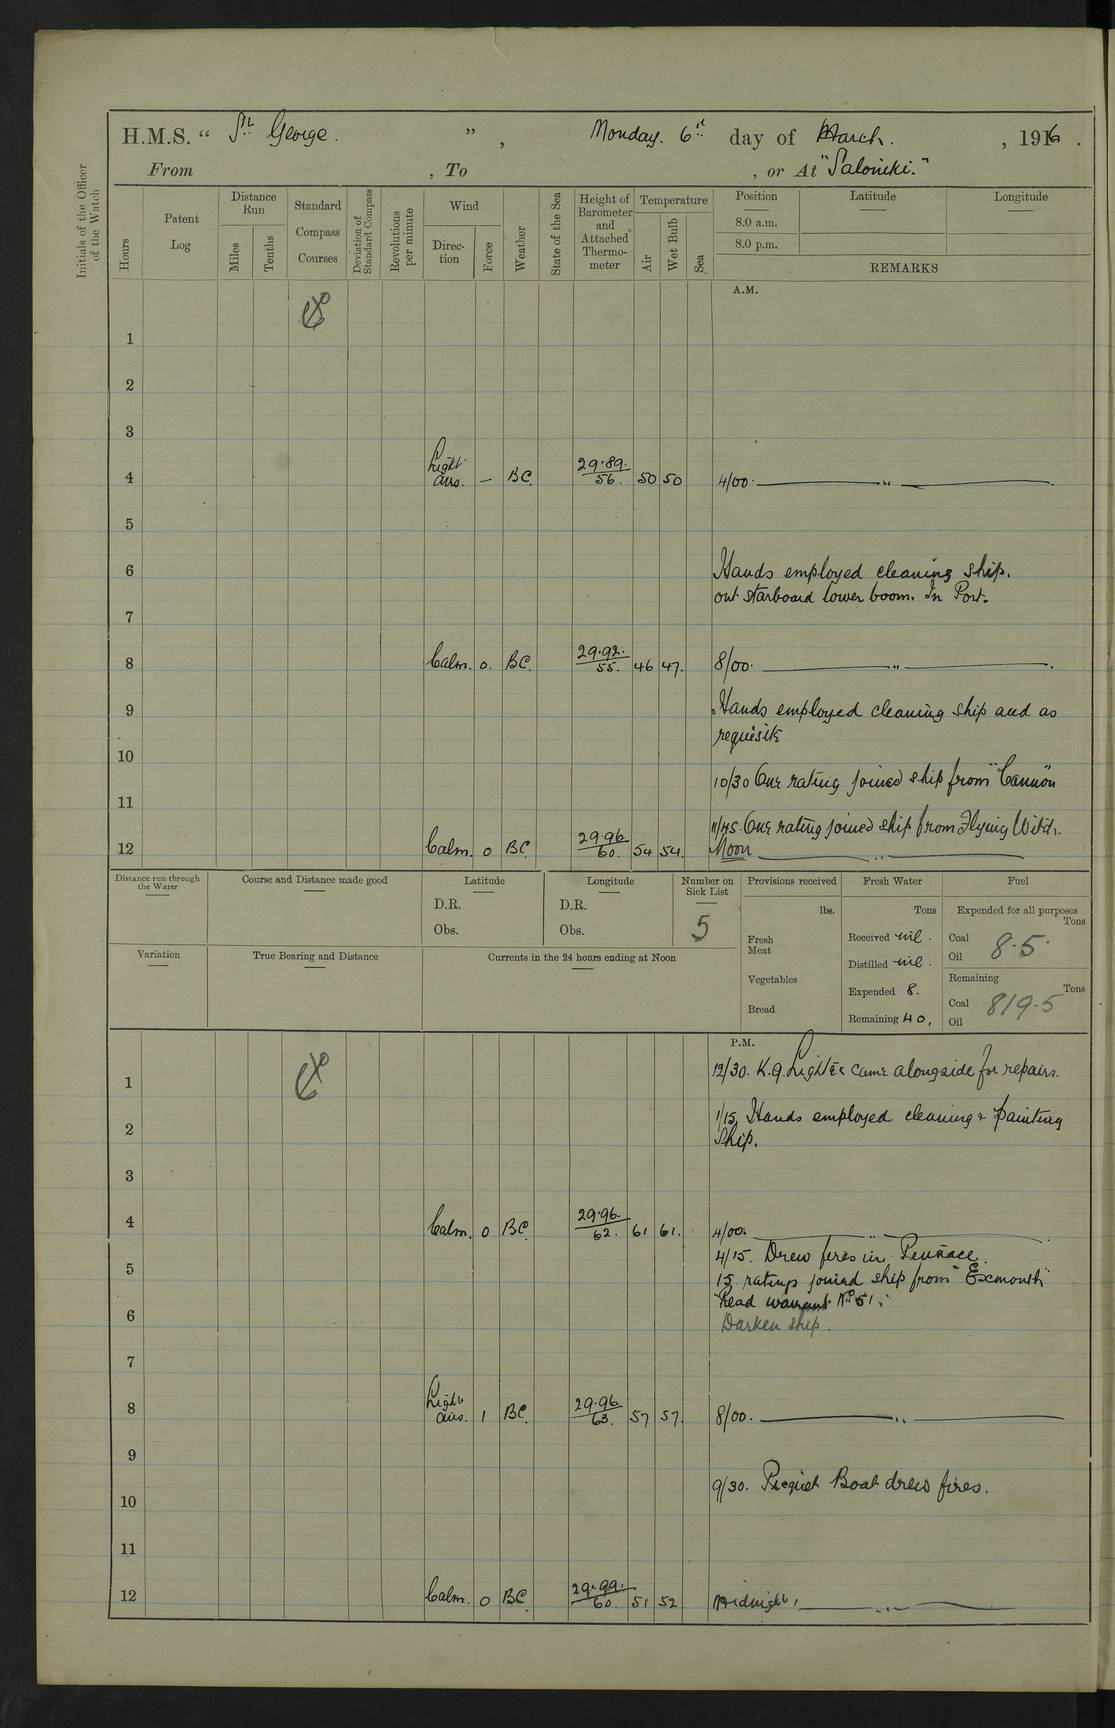 H.M.S. “ St. George. ” , Monday. 6th day of March. , 1916 .
From , To , or At "Salonicki."
Initials of the Officer of the Watch
Hours
Patent Log
Distance Run
Miles
Tenths
Standard Compass Courses
Deviation of Standard Compass
Revolutions per minute
Wind
Direc-tion
Force
Weather
State of the Sea
Height of Barometer and Attached Thermo-meter
Temperature
Air
Wet Bulb
Sea
Position Latitude Longitude
8.0 a.m.
8.0 p.m.
REMARKS
A.M.
1
2
3
4 Light airs. — BC. 29.89. 56. 50 50 4/00. "
5
6 Hands employed cleaning ship.
out starboard lower boom. In Port.
7
8 Calm. 0. BC. 29.92. 55. 46 47. 8/00. "
9 Hands employed cleaning ship and as
requisite
10
10/30 One rating joined ship from "Cannon
11
11/45. One rating joined ship from Flying
12 Calm. 0 BC. 29.96 60. 54 54. Noon "
Distance run through the Water
Course and Distance made good
Latitude
D.R.
Obs.
Longitude
D.R.
Obs.
Number on Sick List
5
Provisions received
lbs.
Fresh Meat
Vegetables
Bread
Fresh Water
Tons
Received nil.
Distilled nil.
Expended 8.
Remaining 40.
Fuel
Expended for all purposes
Tons
Coal 8.5
Oil
Remaining
Tons
Coal 819.5
Oil
Variation
True Bearing and Distance
Currents in the 24 hours ending at Noon
P.M.
12/30. Lighter came alongside for repairs.
1
1/15. Hands employed cleaning & painting
2 Ship.
3
4 Calm. 0 BC. 29.96. 62. 61 61. 4/00. "
4/15. Drew fires in Pennace.
5 15 ratings joined ship from "Exmouth"
Read warrant No 51.
6 Darken ship.
7
8 Light airs. 1 BC. 29.96 63. 57 57. 8/00. "
9
9/30. Picquet Boat drew fires.
10
11
12 Calm. 0 BC. 29.99. 60. 51 52 Midnight. "